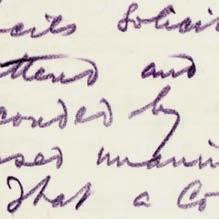 cils Solicit
ttend and
conded by
sed unanim
That a Co